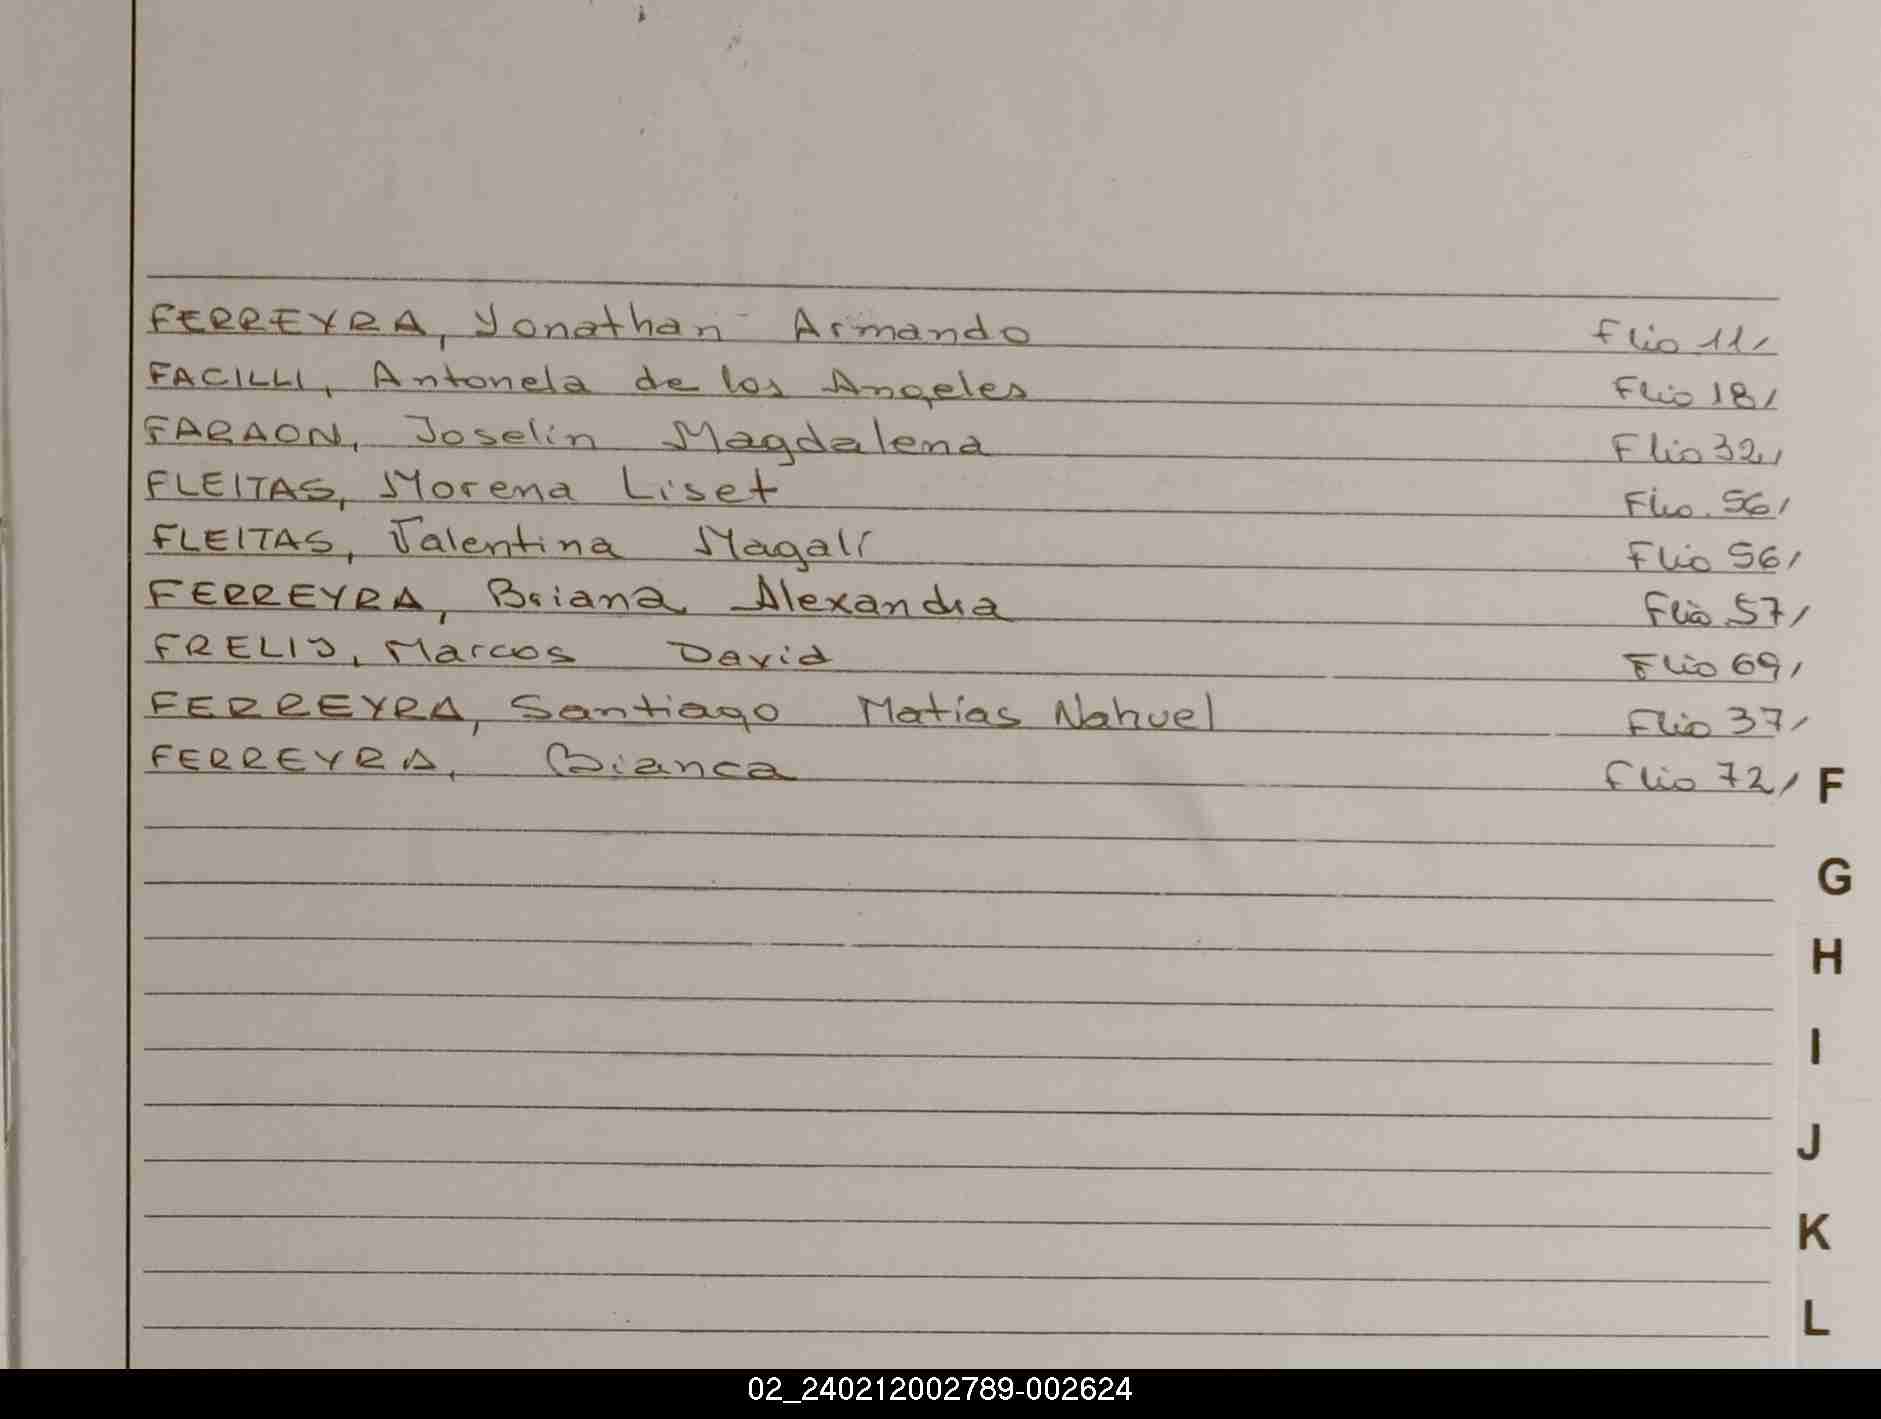 FERREYRA, Yonathan Armando Flio 11,
FACILLI, Antonela de los Angeles Flio 18,
FARAON, Joselin Magdalena Flio 32,
FLEITAS, Morena Liset Flio. 56,
FLEITAS, Valentina Magalí Flio 56,
FERREYRA, Briana Alexandra Flio 57,
FRELIJ, Marcos David Flio 69,
FERREYRA, Santiago Matías Nahuel Flio 37,
FERREYRA, Bianca Flio 72,
F
G
H
I
J
K
L
02_240212002789-002624